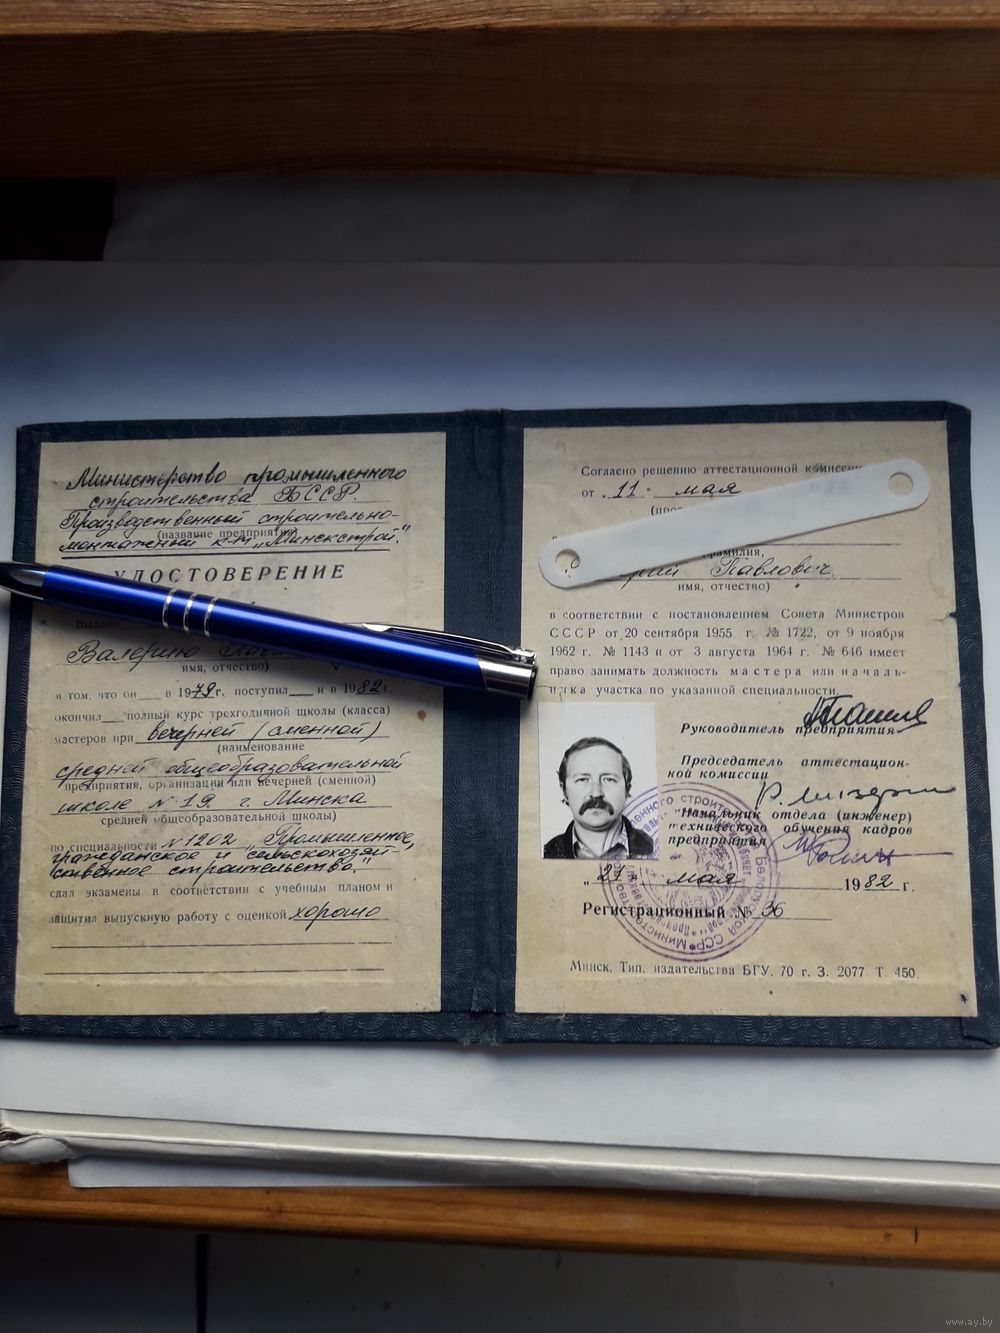 Министерство промышленного
строительства БССР.
Производственный строительно-
(название предприятия)
монтажный к-т „Минскстрой."
УДОСТОВЕРЕНИЕ
Валерию
имя, отчество)
в том, что он в 1979 г. поступил и в 1982 г.
окончил полный курс трехгодичной школы (класса)
мастеров при вечерней (сменной)
(наименование
средней общеобразовательной
предприятия, организации или вечерней (сменной)
школе № 19 г. Минска
средней общеобразовательной школы)
по специальности № 1202 „Промышленное,
гражданское и сельскохозяй-
ственное строительство."
сдал экзамены в соответствии с учебным планом и
защитил выпускную работу с оценкой хорошо
Согласно решению аттестационной комиссии
от „11" мая
фамилия,
Павлович
имя, отчество)
в соответствии с постановлением Совета Министров
СССР от 20 сентября 1955 г. № 1722, от 9 ноября
1962 г. № 1143 и от 3 августа 1964 г. № 646 имеет
право занимать должность мастера или началь-
ника участка по указанной специальности.
Руководитель предприятия
Председатель аттестацион-
ной комиссии
Начальник отдела (инженер)
технического обучения кадров
предприятия
„27" мая 1982 г.
Регистрационный № 36
Минск. Тип. издательства БГУ. 70 г. З. 2077 Т. 450.
www.ay.by